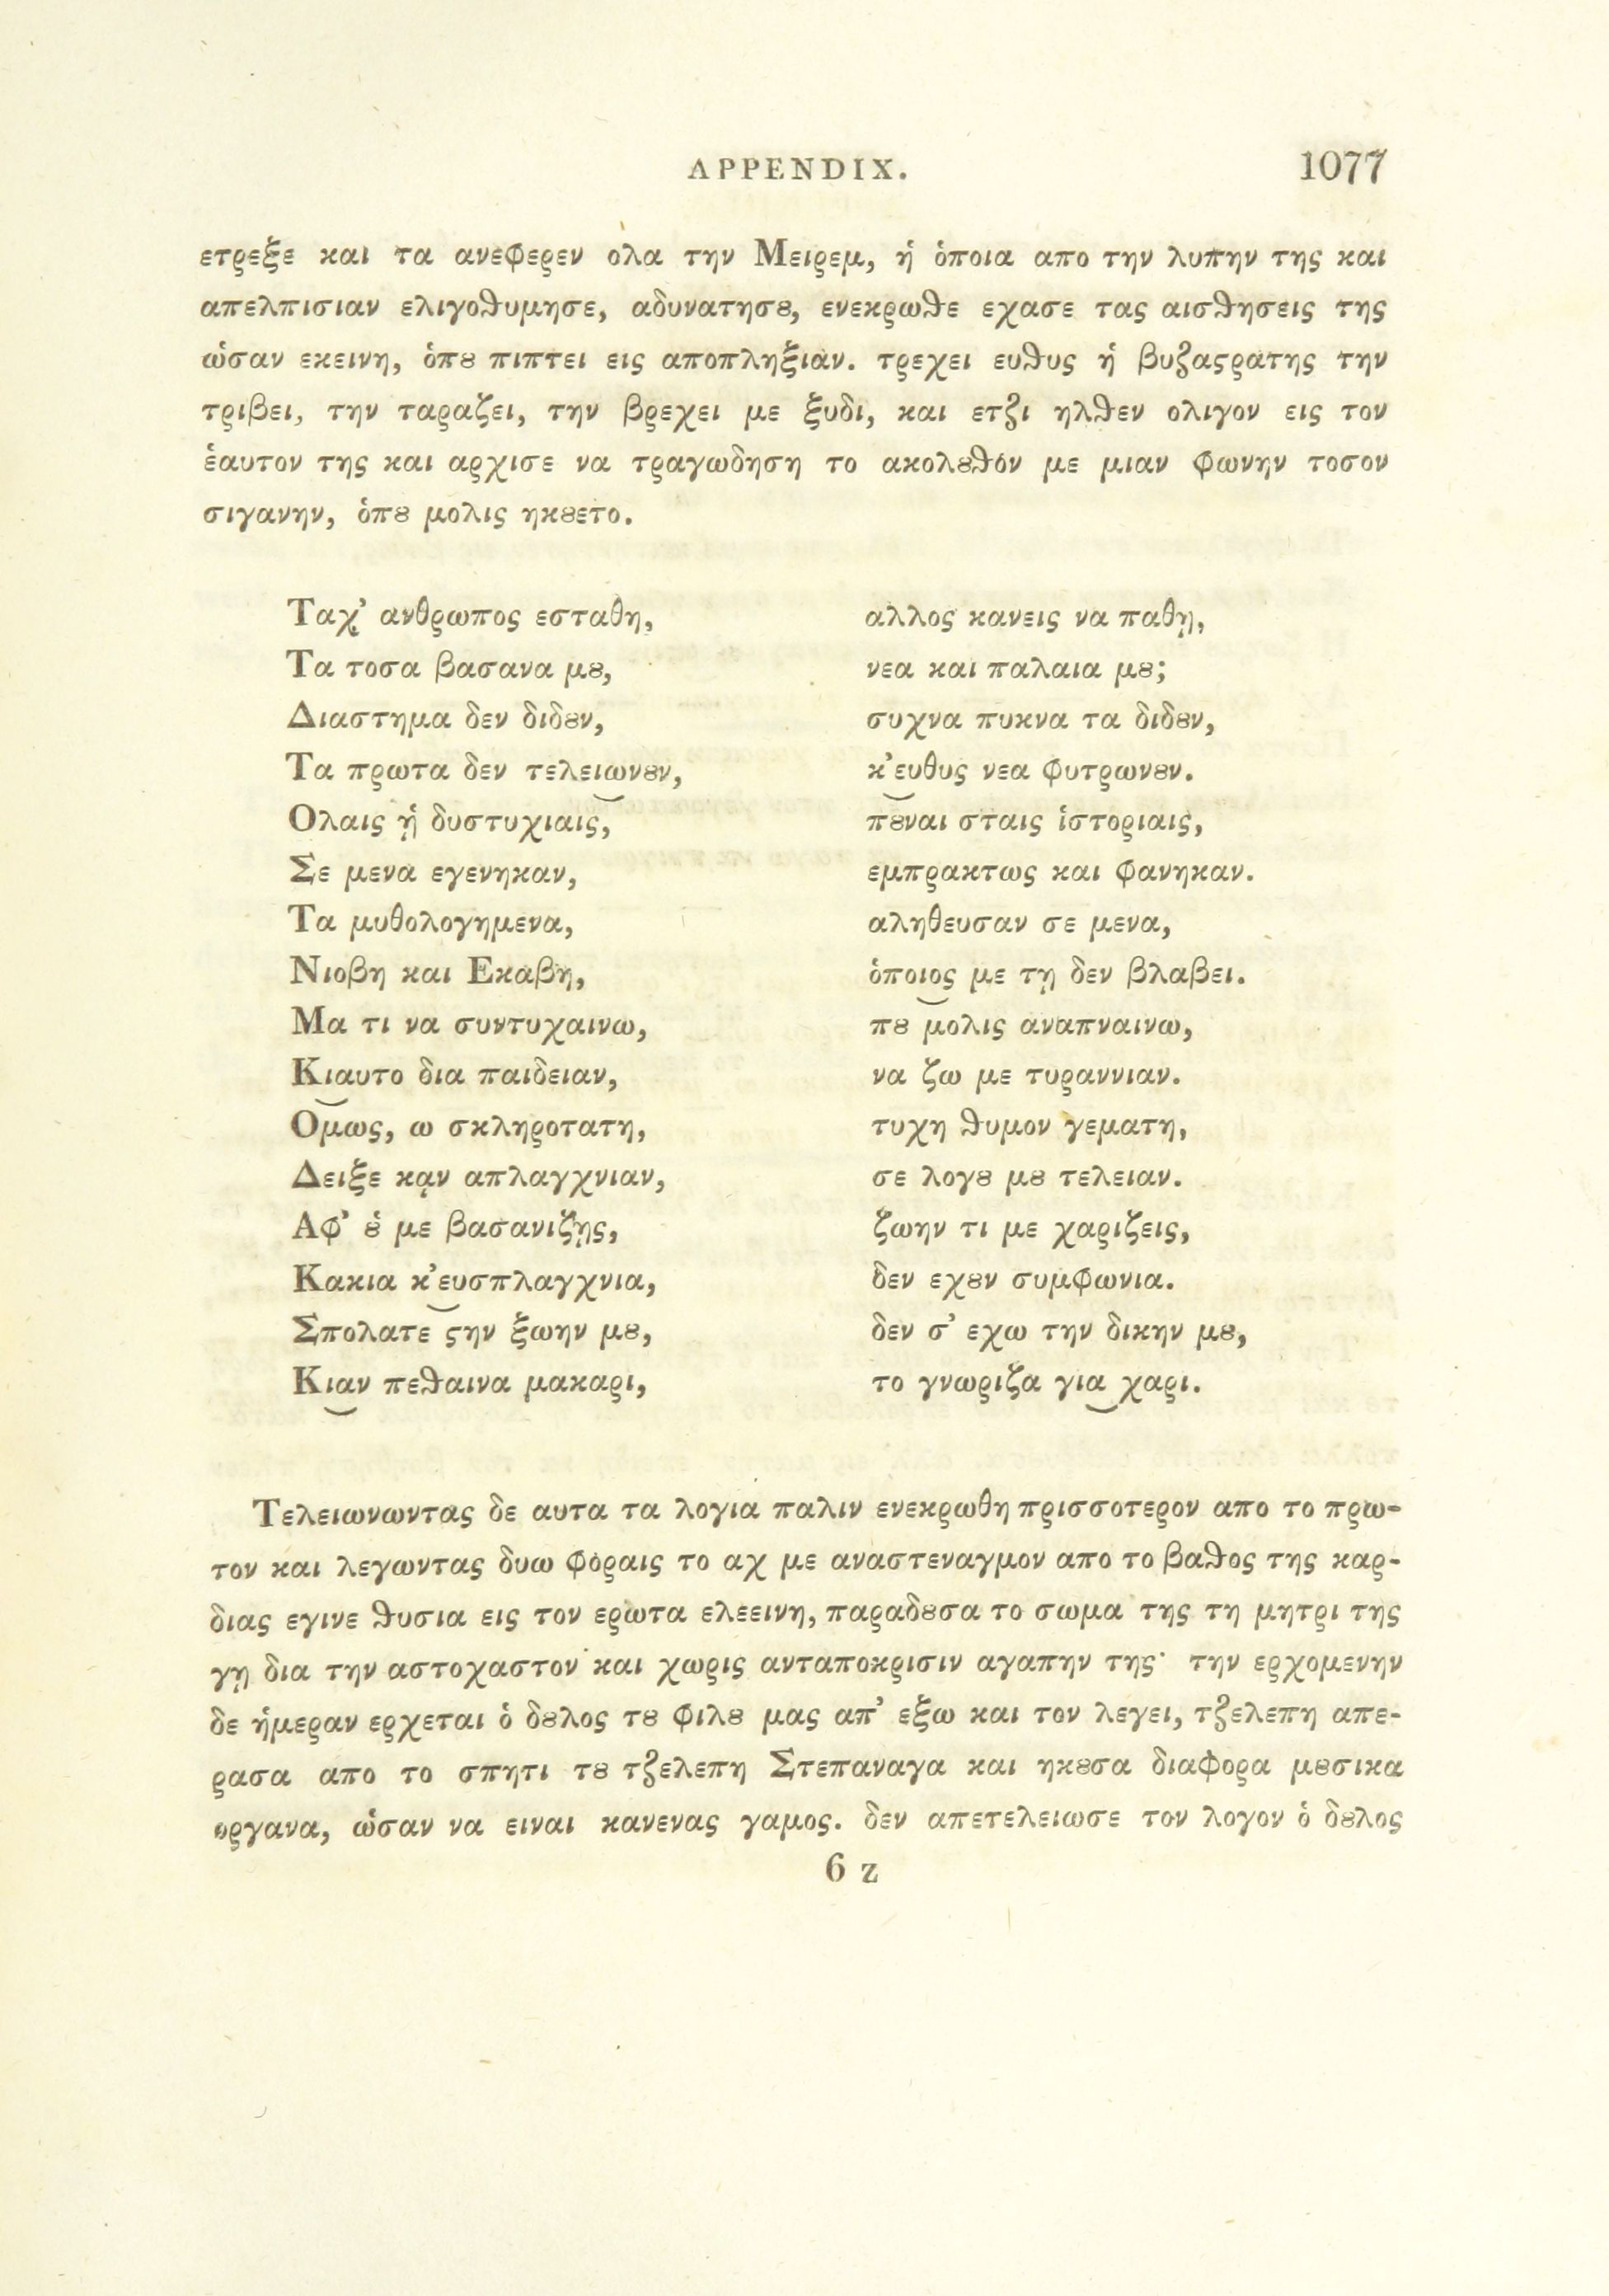 APPENDIX. 1077
ετρεξε και τα ανεφερεν ολα την Μειρεμ, ἡ ὁποια απο την λυπην της και
απελπισιαν ελιγοϑυμησε, αδυνατησȣ, ενεκρωϑε εχασε τας αισϑησεις της
ὡσαν εκεινη, ὁπȣ πιπτει εις αποπληξιαν. τρεχει ευϑυς ἡ βυζαϛρατης την
τριβει, την ταραζει, την βρεχει με ξυδι, και ετζι ηλϑεν ολιγον εις τον
ἑαυτον της και αρχισε να τραγωδηση το ακολȣϑόν με μιαν φωνην τοσον
σιγανην, ὁπȣ μολις ηκȣετο.
Ταχ’ ανθρωπος εσταθη, αλλος κανεις να παθῃ,
Τα τοσα βασανα μȣ, νεα και παλαια μȣ;
Διαστημα δεν διδȣν, συχνα πυκνα τα διδȣν,
Τα πρωτα δεν τελειωνȣν, κ’ευθυς νεα φυτρωνȣν.
Ολαις ᾑ δυστυχιαις, πȣναι σταις ἱστοριαις,
Σε μενα εγενηκαν, εμπρακτως και φανηκαν.
Τα μυθολογημενα, αληθευσαν σε μενα,
Νιοβη και Εκαβη, ὁποιος με τῃ δεν βλαβει.
Μα τι να συντυχαινω, πȣ μολις αναπναινω,
Κιαυτο δια παιδειαν, να ζω με τυραννιαν.
Ομως, ω σκληροτατη, τυχη ϑυμον γεματη,
Δειξε κᾳν απλαγχνιαν, σε λογȣ μȣ τελειαν.
Αφ’ ȣ̔ με βασανιζῃς, ζωην τι με χαριζεις,
Κακια κ’ευσπλαγχνια, δεν εχȣν συμφωνια.
Σπολατε ϛην ξωην μȣ, δεν σ’ εχω την δικην μȣ,
Κιαν πεϑαινα μακαρι, το γνωριζα για χαρι.
Τελειωνωντας δε αυτα τα λογια παλιν ενεκρωθη πρισσοτερον απο το πρω-
τον και λεγωντας δυω φόραις το αχ με αναστεναγμον απο το βαϑος της καρ-
διας εγινε ϑυσια εις τον ερωτα ελεεινη, παραδȣσα το σωμα της τη μητρι της
γῃ δια την αστοχαστον και χωρις ανταποκρισιν αγαπην της· την ερχομενην
δε ἡμεραν ερχεται ὁ δȣλος τȣ φιλȣ μας απ’ εξω και τον λεγει, τζελεπη απε-
ρασα απο το σπητι τȣ τζελεπη Στεπαναγα και ηκȣσα διαφορα μȣσικα
οργανα, ὡσαν να ειναι κανενας γαμος. δεν απετελειωσε τον λογον ὁ δȣλος
6 z